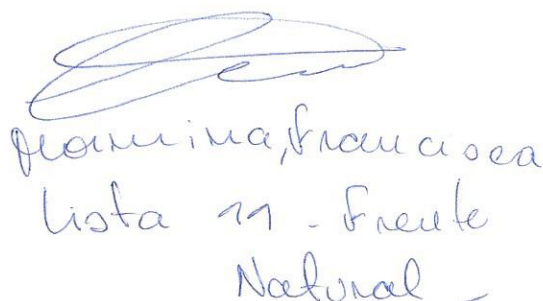 Francisca
Lista 11 - Frente
Natural